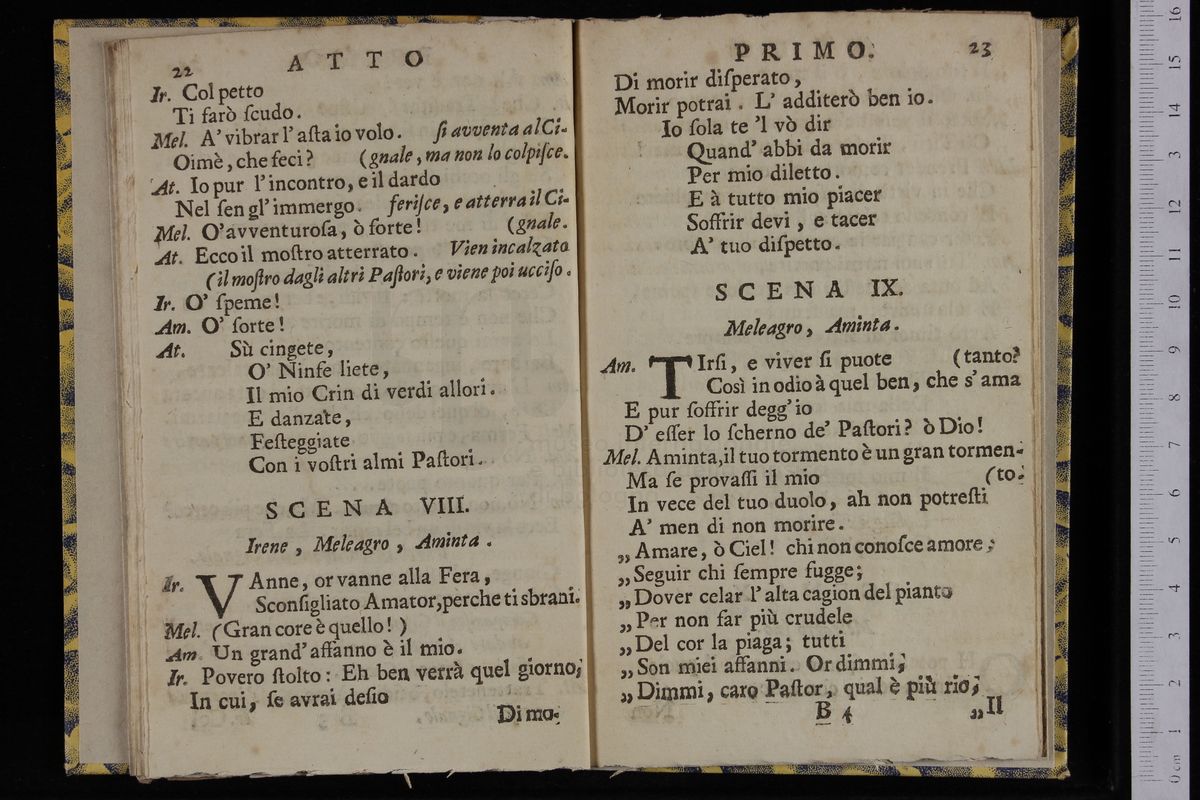 22 ATTO
Ir. Col petto
Ti farò ſcudo.
Mel. A' vibrar l' aſta io volo. ſi avventa al Ci-
Oimè, che feci? (gnale, ma non lo colpiſce.
At. Io pur l'incontro, e il dardo
Nel ſen gl' immergo. feriſce, e atterra il Ci-
Mel. O' avventuroſa, ò ſorte! (gnale.
At. Ecco il moſtro atterrato. Vien incalzato
(il moſtro dagli altri Paſtori, e viene poi ucciſo.
Ir. O' ſpeme!
Am. O' ſorte!
At. Sù cingete,
O' Ninfe liete,
Il mio Crin di verdi allori.
E danzate,
Feſteggiate
Con i voſtri almi Paſtori.
SCENA VIII.
Irene, Meleagro, Aminta.
Ir. VAnne, or vanne alla Fera,
Sconſigliato Amator, perche ti sbrani.
Mel. (Gran core è quello!)
Am. Un grand' affanno è il mio.
Ir. Povero ſtolto: Eh ben verrà quel giorno,
In cui, ſe avrai deſio
Di mo-
PRIMO. 23
Di morir diſperato,
Morir potrai. L' additerò ben io.
Io ſola te 'l vò dir
Quand' abbi da morir
Per mio diletto.
E à tutto mio piacer
Soffrir devi, e tacer
A' tuo diſpetto.
SCENA IX.
Meleagro, Aminta.
Am. TIrſi, e viver ſi puote (tanto?
Così in odio à quel ben, che s' ama
E pur ſoffrir degg' io
D' eſſer lo ſcherno de' Paſtori? ò Dio!
Mel. Aminta, il tuo tormento è un gran tormen-
Ma ſe provaſſi il mio (to.
In vece del tuo duolo, ah non potreſti
A' men di non morire.
„ Amare, ò Ciel! chi non conoſce amore;
„ Seguir chi ſempre fugge;
„ Dover celar l' alta cagion del pianto
„ Per non far più crudele
„ Del cor la piaga; tutti
„ Son miei affanni. Or dimmi,
„ Dimmi, caro Paſtor, qual è più rio,
B 4 „ Il
16
15
14
13
12
11
10
9
8
7
6
5
4
3
2
1
0 cm